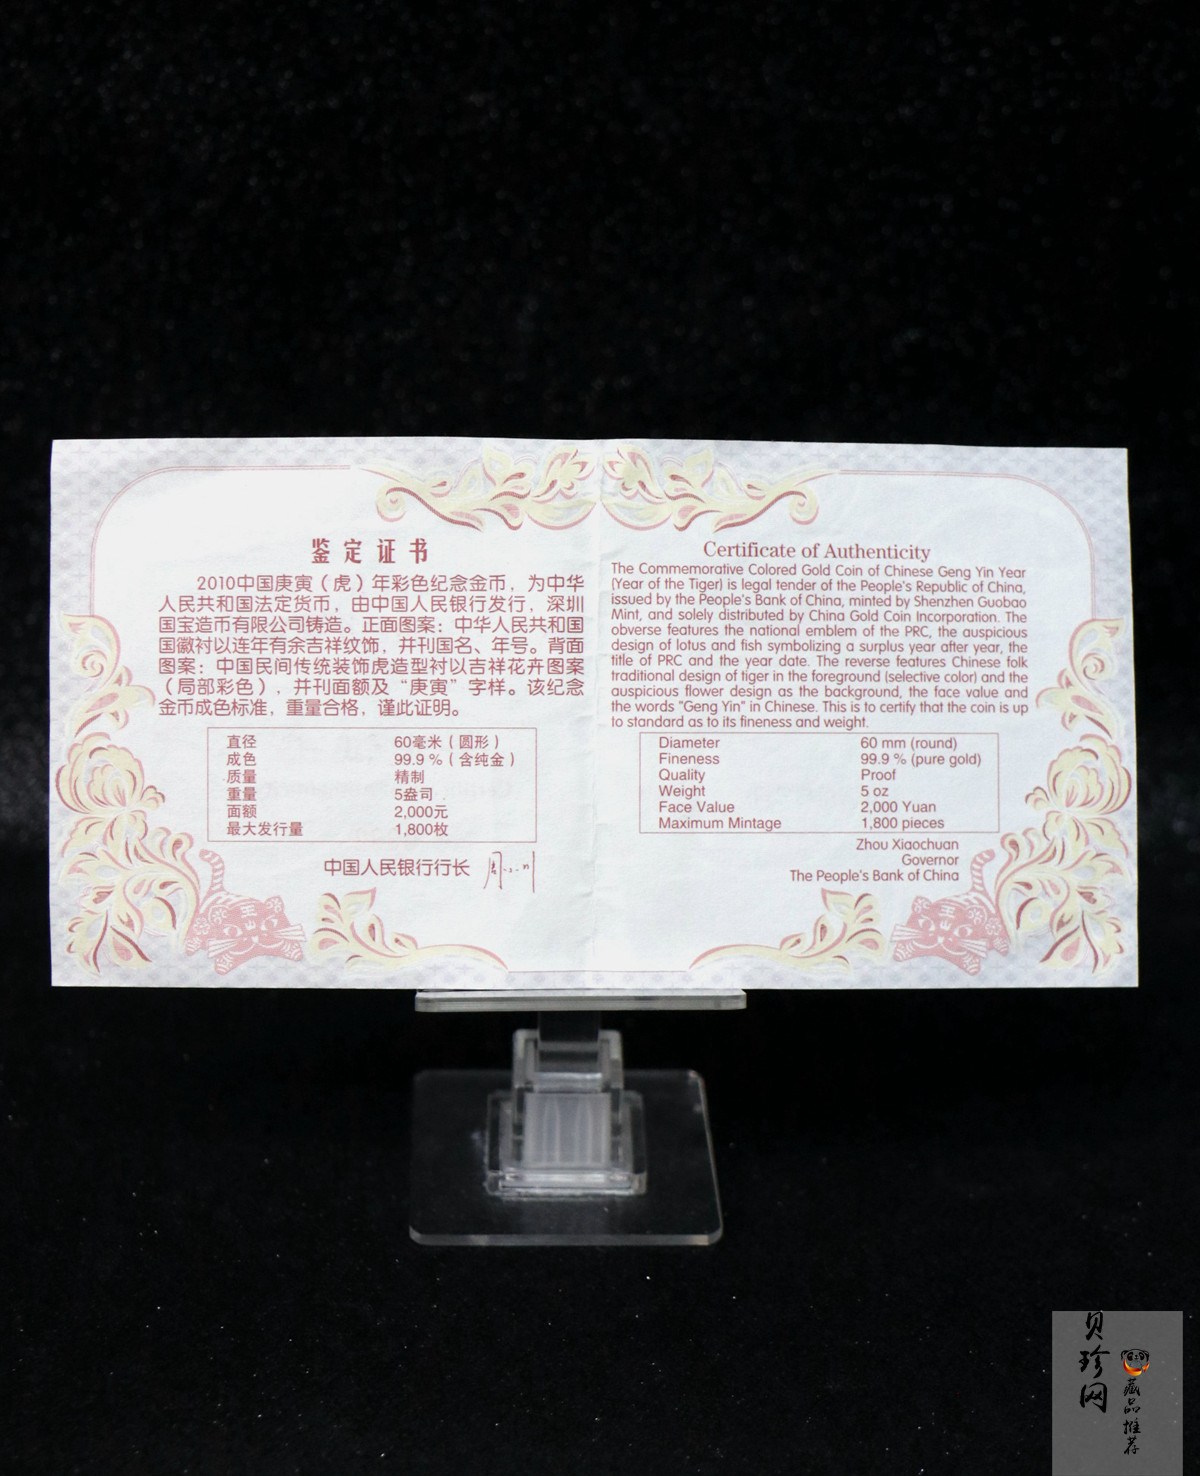 鉴定证书
2010中国庚寅（虎）年彩色纪念金币，为中华
人民共和国法定货币，由中国人民银行发行，深圳
国宝造币有限公司铸造。正面图案：中华人民共和国
国徽衬以连年有余吉祥纹饰，并刊国名、年号。背面
图案：中国民间传统装饰虎造型衬以吉祥花卉图案
（局部彩色），并刊面额及“庚寅”字样。该纪念
金币成色标准，重量合格，谨此证明。
直径 60毫米（圆形）
成色 99.9％（含纯金）
质量 精制
重量 5盎司
面额 2,000元
最大发行量 1,800枚
中国人民银行行长
Certificate of Authenticity
The Commemorative Colored Gold Coin of Chinese Geng Yin Year
(Year of the Tiger) is legal tender of the People's Republic of China,
issued by the People's Bank of China, minted by Shenzhen Guobao
Mint, and solely distributed by China Gold Coin Incorporation. The
obverse features the national emblem of the PRC, the auspicious
design of lotus and fish symbolizing a surplus year after year, the
title of PRC and the year date. The reverse features Chinese folk
traditional design of tiger in the foreground (selective color) and the
auspicious flower design as the background, the face value and
the words "Geng Yin" in Chinese. This is to certify that the coin is up
to standard as to its fineness and weight.
Diameter 60 mm (round)
Fineness 99.9 % (pure gold)
Quality Proof
Weight 5 oz
Face Value 2,000 Yuan
Maximum Mintage 1,800 pieces
Zhou Xiaochuan
Governor
The People's Bank of China
贝珍网
藏品推荐